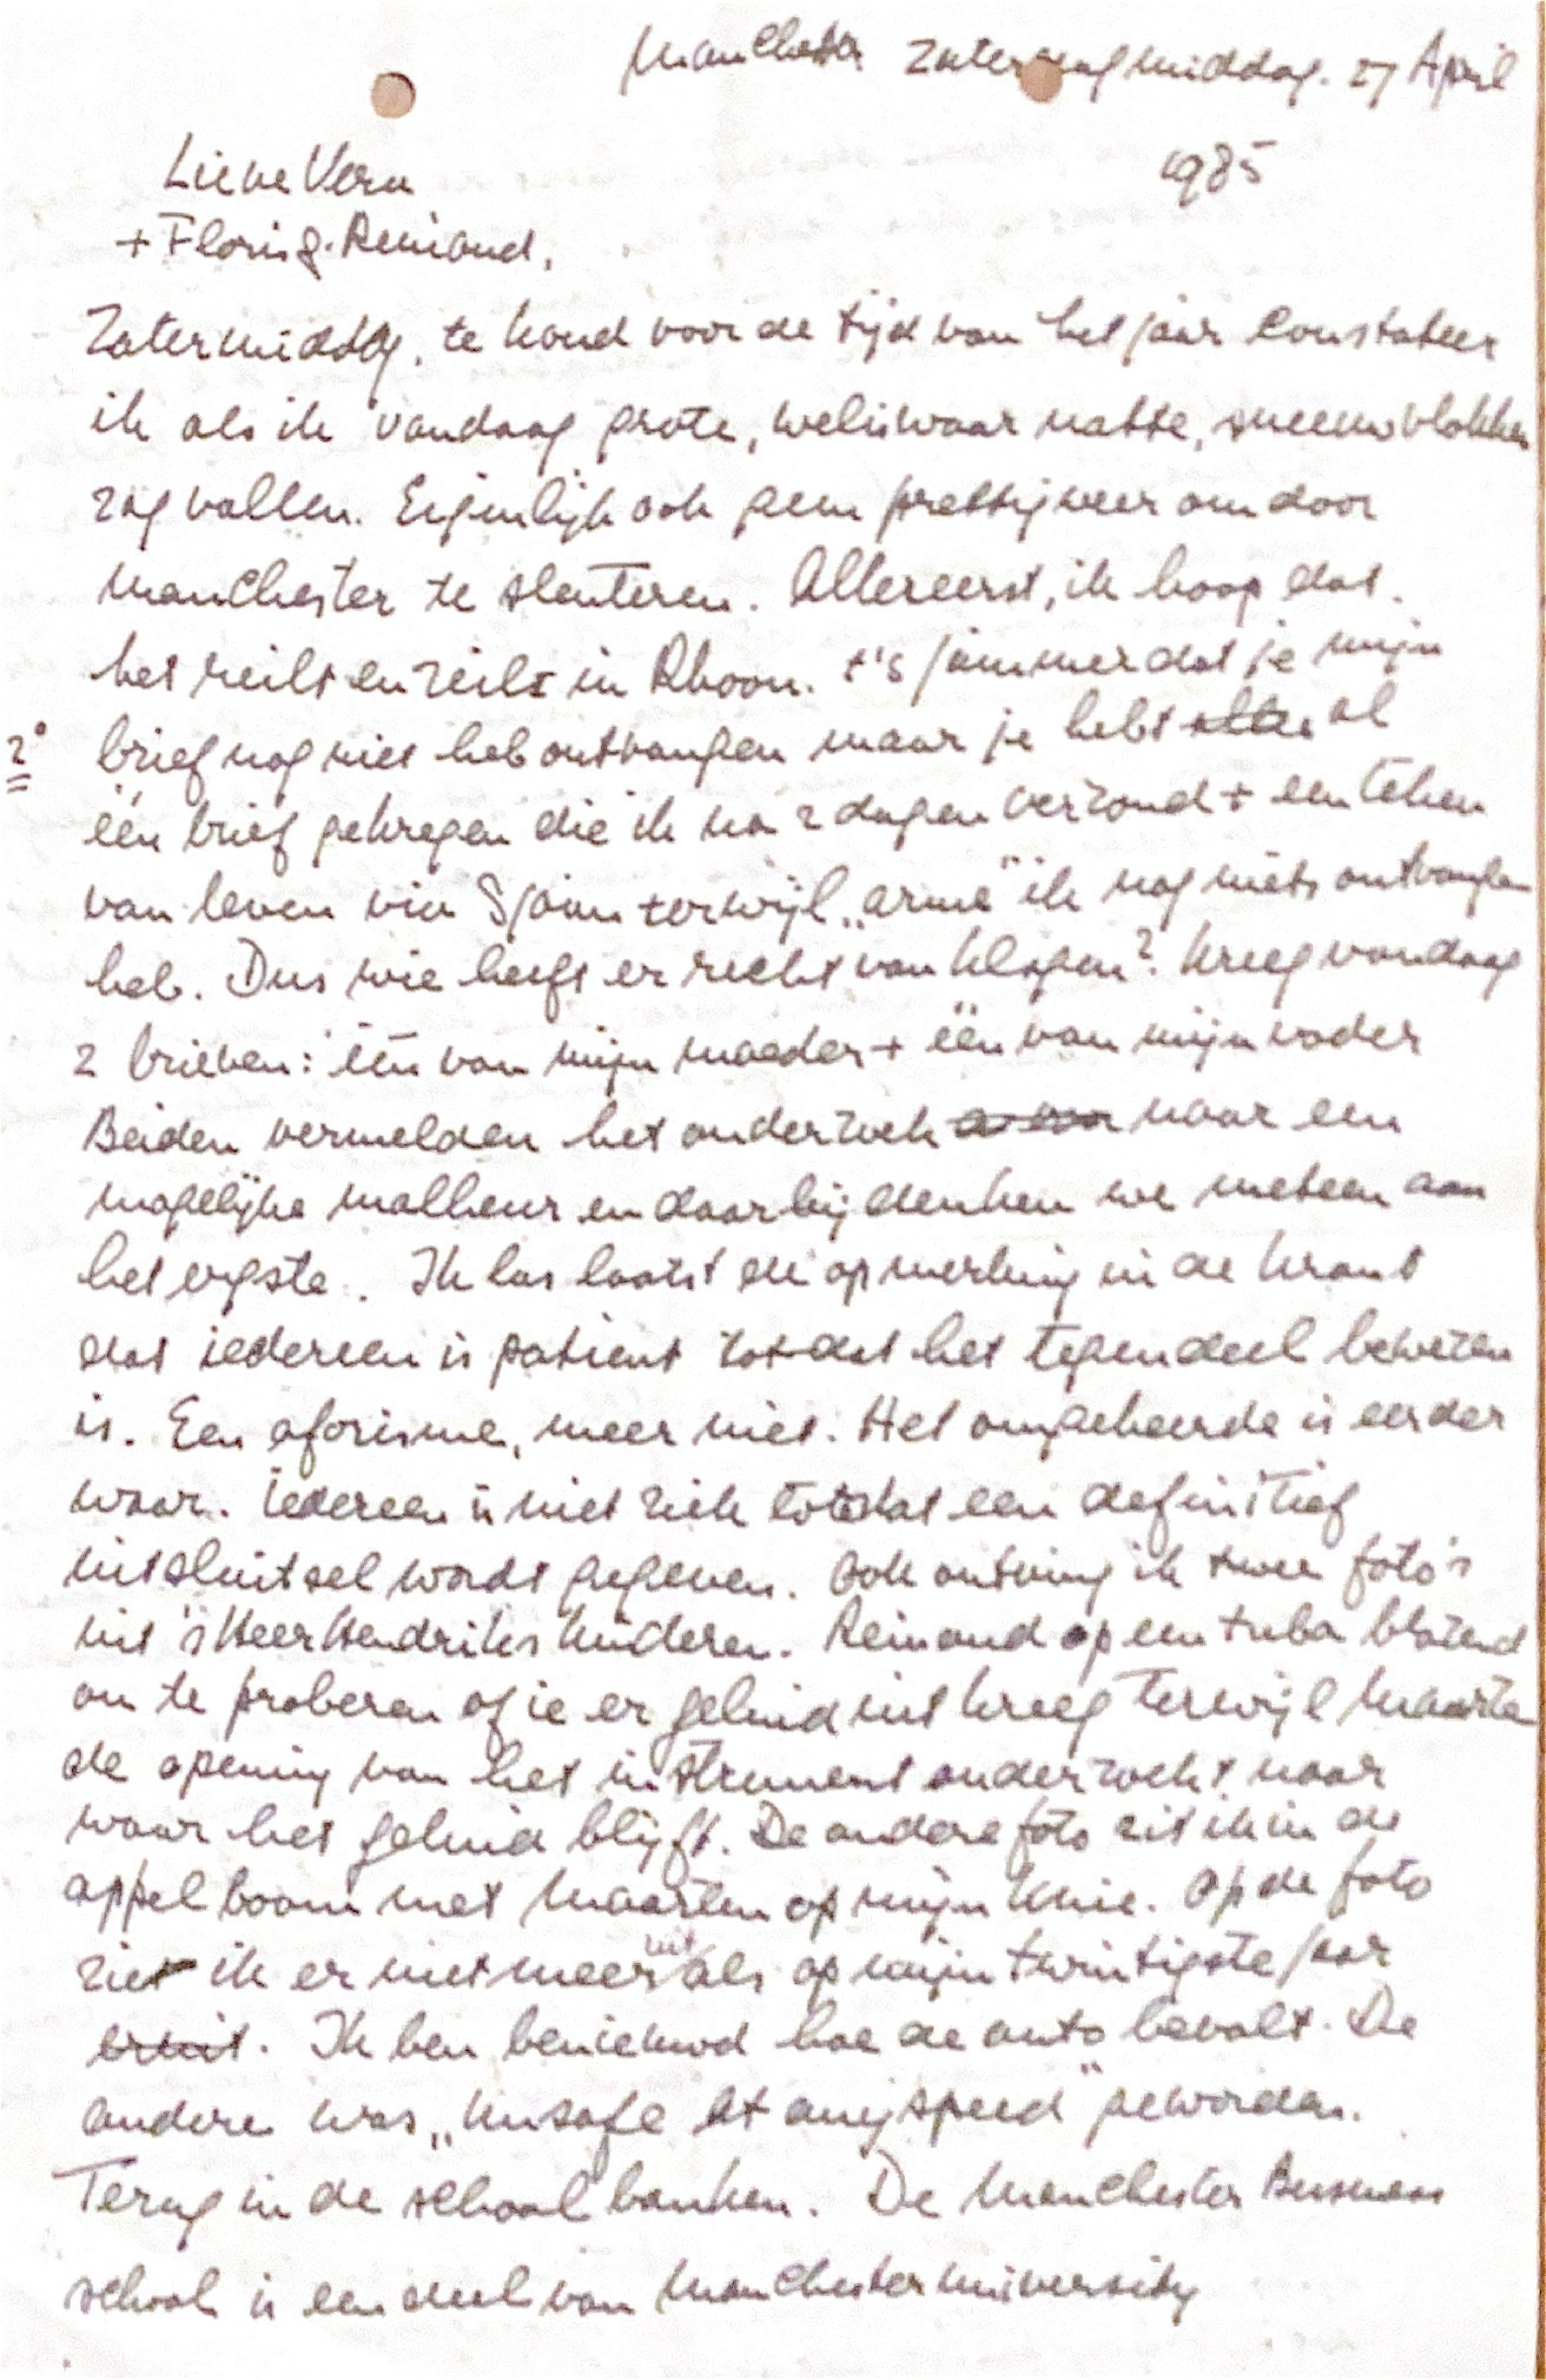 Manchester Zaterdagmiddag. 27 April
1985
Lieve Vera
+ Floris & Reinoud,
Zatermiddag. te koud voor de tijd van het jaar constateer
ik als ik vandaag grote, weliswaar natte, sneeuwvlokken
zag vallen. Eigenlijk ook geen prettig weer om door
Manchester te slenteren. Allereerst, ik hoop dat
het reilt en zeilt in Rhoon. t's jammer dat je mijn
2e brief nog niet heb ontvangen maar je hebt al
één brief gekregen die ik na 2 dagen verzond + een teken
van leven via Sjaan terwijl „arme" ik nog niets ontvangen
heb. Dus wie heeft er recht van klagen? Kreeg vandaag
2 brieven: één van mijn moeder + één van mijn vader
Beiden vermelden het onderzoek naar een
mogelijke malheur en daarbij denken we meteen aan
het ergste. Ik las laatst de opmerking in de krant
dat iedereen is patient totdat het tegendeel bewezen
is. Een aforisme, meer niet. Het omgekeerde is eerder
waar. Iedereen is niet ziek totdat een definitief
uitsluitsel wordt gegeven. Ook ontving ik twee foto's
uit 's Heer Hendriks Kinderen. Reinoud op een tuba blazend
om te proberen of ie er geluid uit kreeg terwijl Maarten
de opening van het instrument onderzocht naar
waar het geluid blijft. De andere foto zit ik in de
appelboom met Maarten op mijn knie. Op de foto
ziet ik er niet meer uit als op mijn twintigste jaar
eruit. Ik ben benieuwd hoe de auto bevalt. De
andere was „Unsafe at any speed" geworden.
Terug in de schoolbanken. De Manchester Business
school is een deel van Manchester University